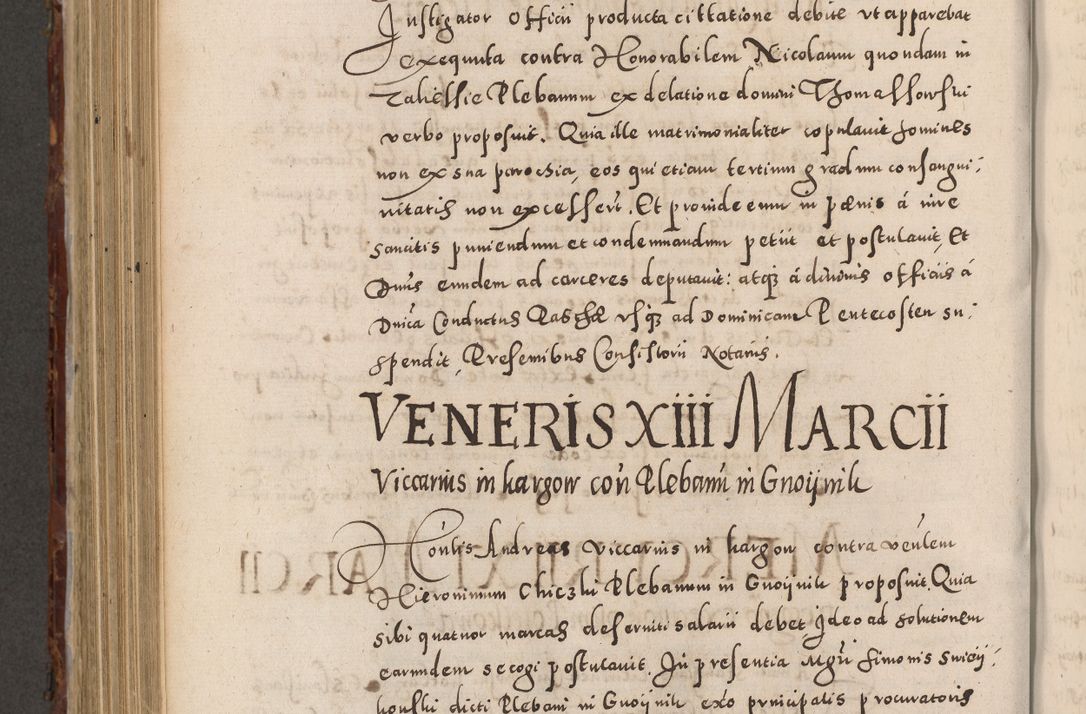 Instigator Officii producta cittatione debite ut apparebat
exequuta contra Honorabilem Nicolaum quondam in
Plebanum ex delatione domini Thomassowski
verbo proposuit. Quia ille matrimonialiter copulavit homines
non ex sua parochia, eos qui etiam tertium gradum consangui-
nitatis non excesser̃t. Et proinde eum in pænis á iure
sancitis puniendum et condemnandum petiit et postulavit, Et
Dnũs eundem ad carceres deputavit: atq́ á divinis officiis á
Dnĩca Conductus Paschæ usq́ ad Dominicam Pentecosten su-
spendit, Presentibus Consistorii Notariis.
VENERIS XIII MARCII
Viccarius in kargow con̄ Plebanū in Gnoijnik
Hon̄lis Andreas Viccarius in kargow contra ven̄lem
Hieronimum Chiczki Plebanum in Gnoijnik proposuit, Quia
sibi quatuor marcas deserviti salarii debet Ideo ad solutionem
earundem se cogi postulavit. In presentia Mgr̃i Simonis
dicti Plebani in Gnoijnik exõ principalis procuratoris